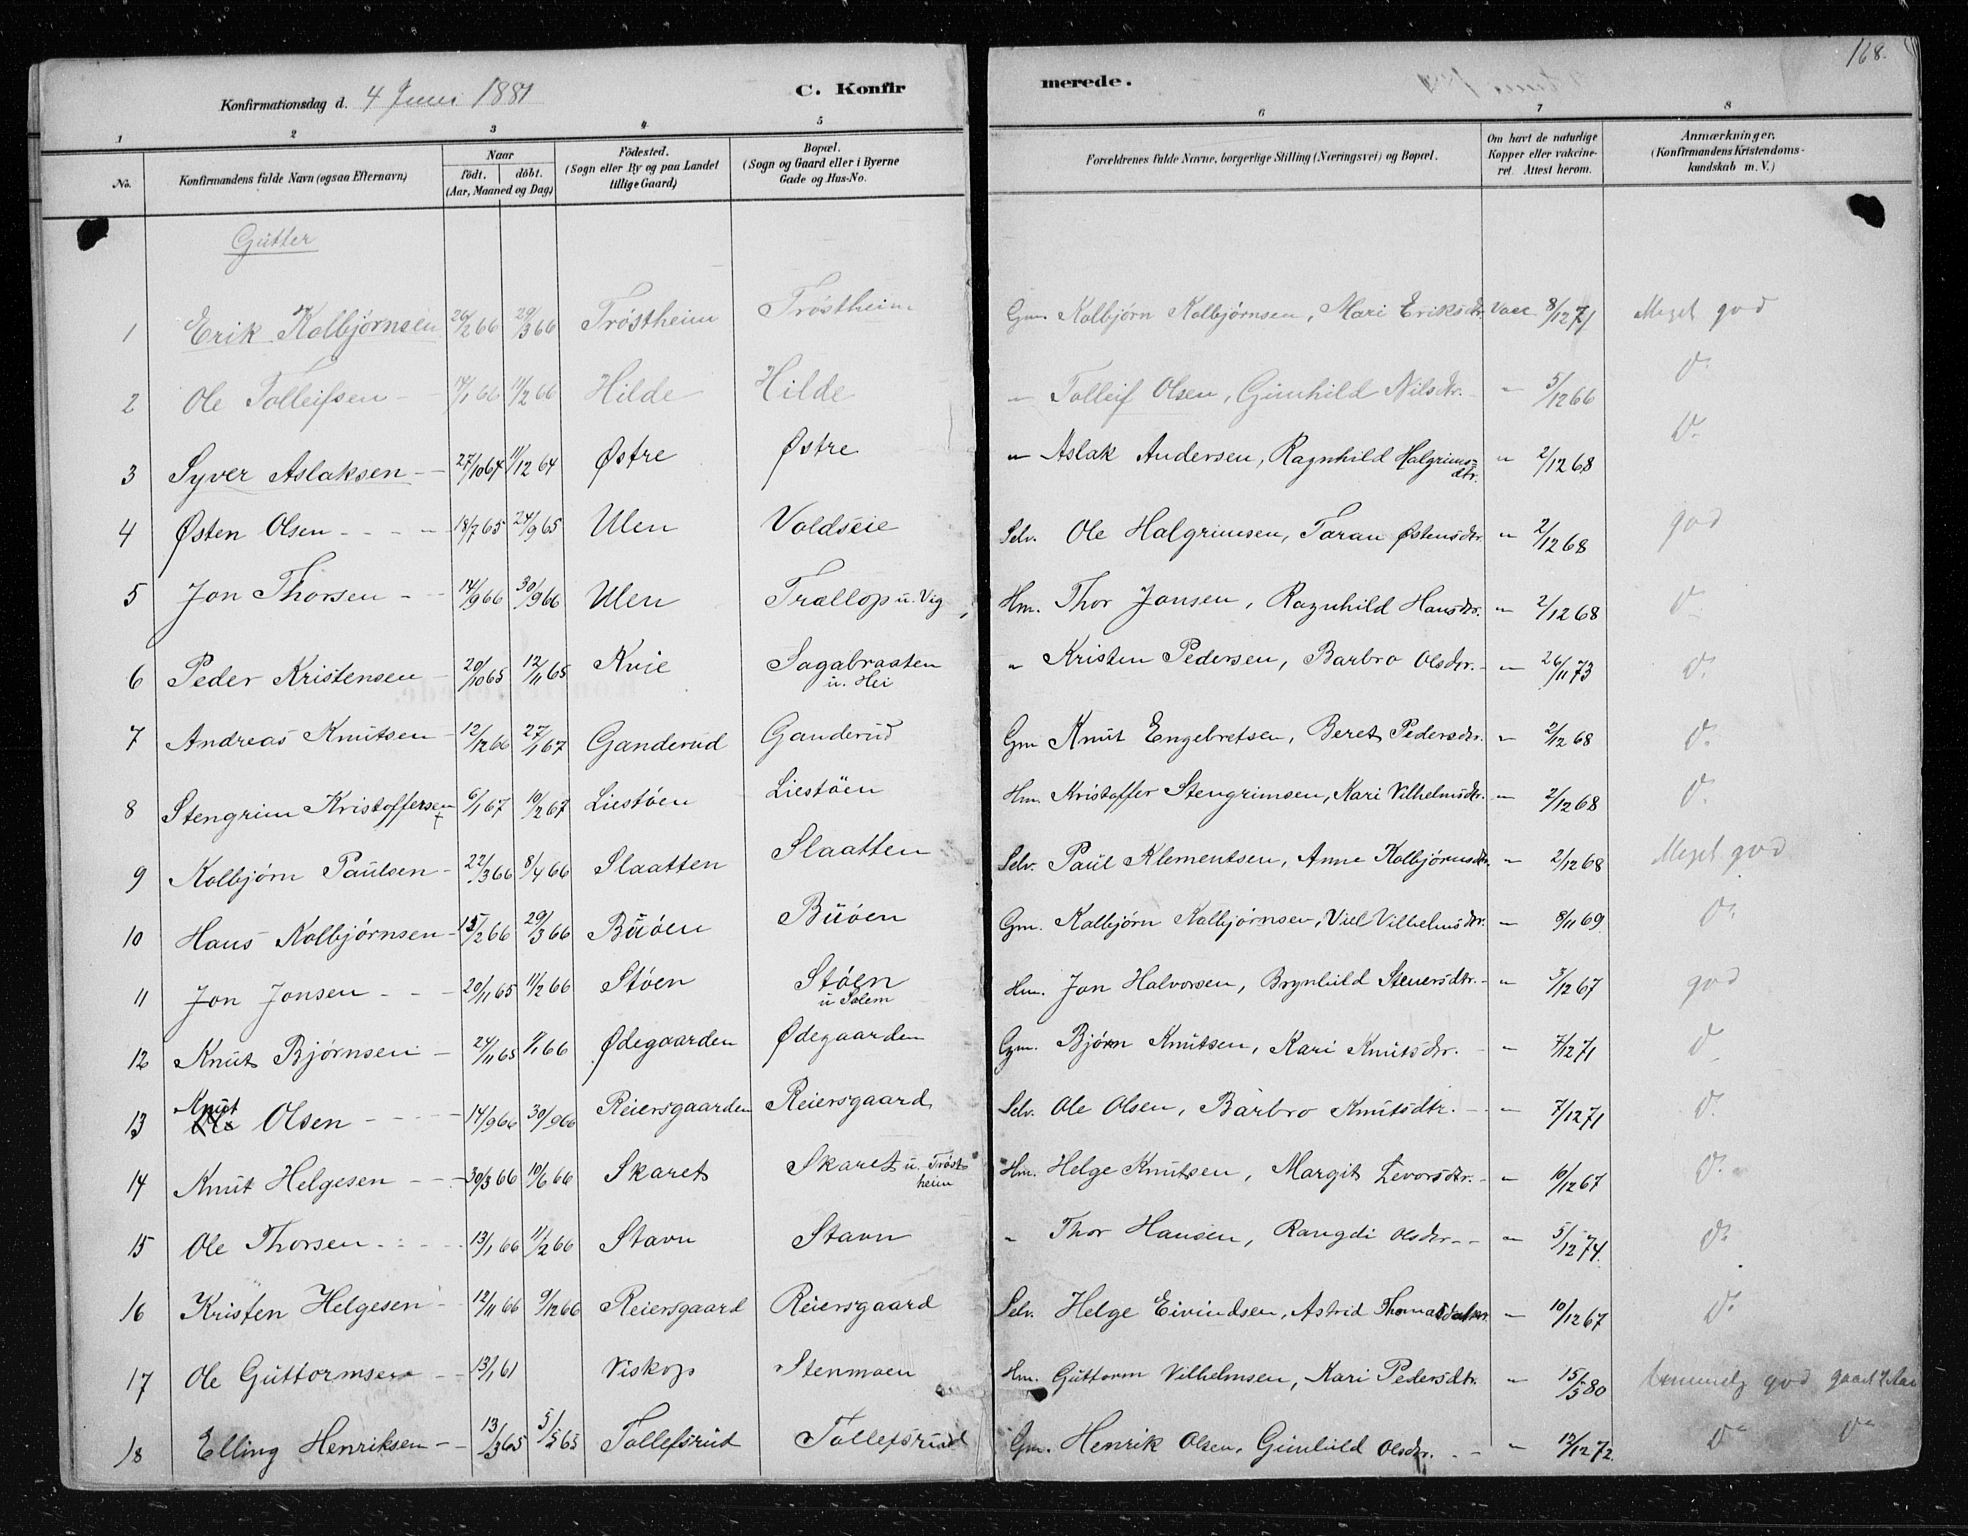 168.
Konfirmationsdag d. 4 Juni 1881 C. Konfirmerede.
1 2 3 4 5 6 7 8
No. Konfirmandens fulde Navn (ogsaa Efternavn) Naar født. døbt. (Aar, Maaned og Dag) Fødested. (Sogn eller By og paa Landet tillige Gaard) Bopæl. (Sogn og Gaard eller i Byerne Gade og Hus-No. Forældrenes fulde Navne, borgerlige Stilling (Næringsvei) og Bopæl. Om havt de naturlige Kopper eller vakcineret. Attest herom. Anmærkninger. (Konfirmandens Kristendomskundskab m. V.)
Gutter
1 Erik Kolbjørnsen 26/2 66 29/3 66 Trøstheim Trøstheim Gm. Kolbjørn Kolbjørnsen, Mari Eriksdtr. Vacc. 8/12 71 Meget god
2 Ole Tolleifsen 14/1 66 11/2 66 Hilde Hilde " Tolleif Olsen, Gunhild Nilsdtr. " 5/12 66 D.
3 Syver Aslaksen 27/10 64 11/12 64 Østre Østre " Aslak Andersen, Ragnhild Halgrimsdtr. " 2/12 68 D.
4 Østen Olsen 18/7 65 24/9 65 Ulen Voldseie Selv. Ole Halgrimsen, Taran Østensdtr. " 2/12 68 god
5 Jon Thorsen 14/9 66 30/9 66 Ulen Trællop u. Vig Hm. Thor Jonsen, Ragnhild Hansdtr. " 2/12 68 D.
6 Peder Kristensen 20/10 65 12/11 65 Kvie Sagabraaten u. Hei " Kristen Pedersen, Barbro Olsdtr. " 26/11 73 D.
7 Andreas Knutsen 12/12 66 27/1 67 Ganderud Ganderud Gm Knut Engebretsen, Beret Pedersdtr. " 2/12 68 D.
8 Stengrim Kristoffersen 6/1 67 10/2 67 Liestøen Liestøen Hm. Kristoffer Stengrimsen, Kari Vilhelmsdtr. " 2/12 68 D.
9 Kolbjørn Paulsen 22/3 66 8/4 66 Slaatten Slaatten Selv. Paul Klementsen, Anne Kolbjørnsdtr. " 2/12 68 Meget god
10 Hans Kolbjørnsen 15/2 66 29/3 66 Buøen Buøen Gm. Kolbjørn Kolbjørnsen, Viel Vilhelmsdtr. " 8/11 69. D.
11 Jon Jonsen 20/11 65 11/2 66 Støen Støen u Solem Hm. Jon Halvorsen, Brynhild Steuersdtr. " 3/12 67 god
12 Knut Bjørnsen 24/11 65 1/1 66 Ødegaarden Ødegaarden Gm. Bjørn Knutsen, Kari Knutsdtr. " 7/12 71 D.
13 Knut Olsen 14/9 66 30/9 66 Reiersgaarden Reiersgaard Selv. Ole Olsen, Barbro Knutsdtr. " 7/12 71 D.
14 Knut Helgesen 30/3 66 10/6 66 Skaret Skaret u. Trøstheim Hm. Helge Knutsen, Margit Levorsdtr. " 10/12 67 D.
15 Ole Thorsen 13/1 66 11/2 66 Stavn Stavn " Thor Hansen, Rangdi Olsdtr. " 5/12 74. D.
16 Kristen Helgesen 12/11 66 9/12 66 Reiersgaard Reiersgaard Selv. Helge Eivindsen, Astrid Thomasdatter. " 10/12 67 D.
17 Ole Guttormsen 13/1 61 Viskop Stenmoen Hm. Guttorm Vilhelmsen, Kari Pedersdtr. " 15/5 80 god gaaet 2 Aar
18 Elling Henriksen 13/3 65 5/5 65 Tollefsrud Tollefsrud Gm. Henrik Olsen, Gunhild Olsdtr. " 12/12 72. D. D.